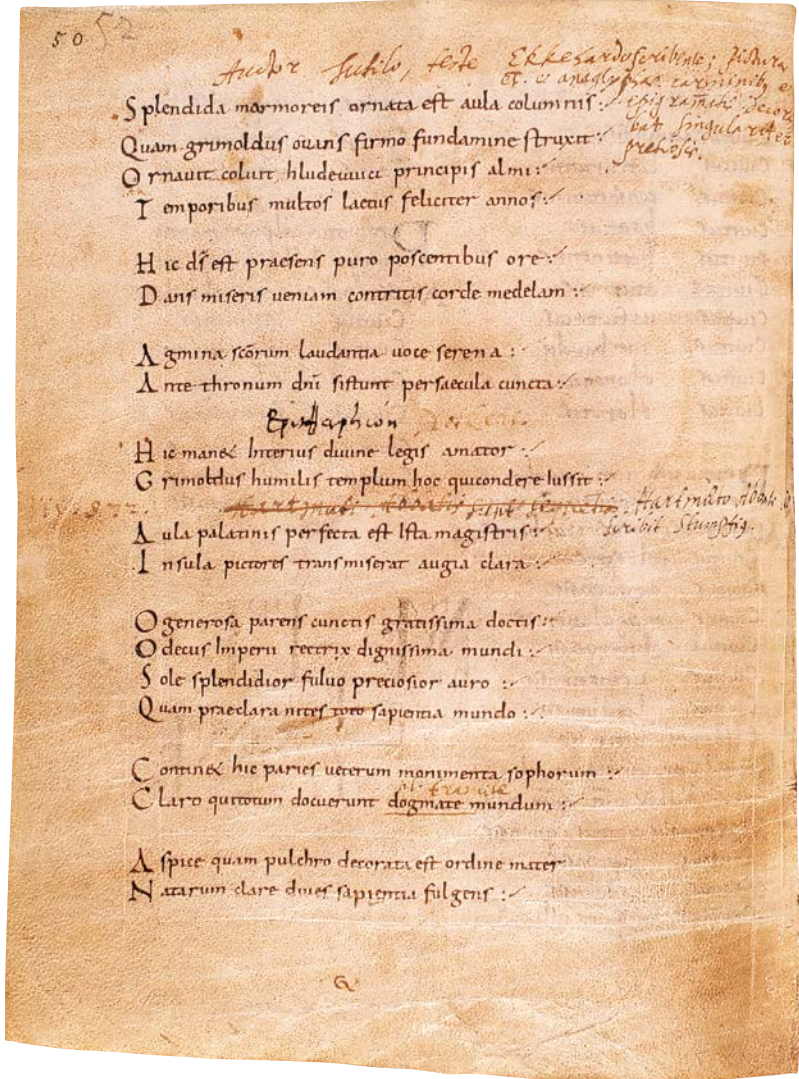 50 52
Auctor Tutilo, teste Ekkehardo scribente; picturas
etc. et anaglyphas carminibus et
Splendida marmoreis ornata est aula columnis :
epigramatis decor
Quam grimoldus ouans firmo fundamine struxit :
bat singulariter
pretiosis.
Ornauit coluit, hludeuuici principis almi :
Temporibus multos laetus feliciter annos :
Hic d̄s est praesens puro poscentibus ore :
Dans miseris ueniam contritis corde medelam :
Agmina scōrum laudantia uoce serena :
Ante thronum dn̄i sistunt persaecula cuncta :
Epitaphion
Hic manet Interius diuine legis amator :
Grimoldus humilis templum hoc quicondere Iussit :
Hartmuto Abbati
scribit Stumpfig.
Aula palatinis perfecta est Ista magistris :
Insula pictores transmiserat augia clara :
O generosa parens cunctis gratissima doctis :
O decus Imperii rectrix dignissima mundi :
Sole splendidior fuluo preciosior auro :
Quam praeclara nites toto sapientia mundo :
Continet hic paries ueterum monimenta sophorum :
tramite
Claro quitotum docuerunt dogmate mundum :
Aspice quam pulchro decorata est ordine mater
Natarum clare diues sapientia fulgens :